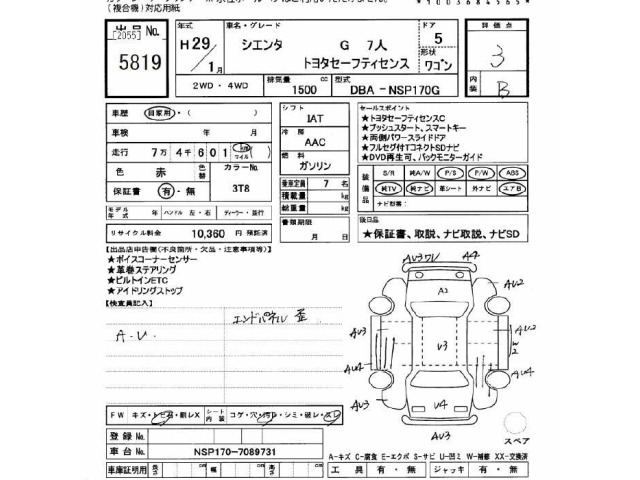 (複合機)対応用紙
出品 No. [2055] 5819
年式 H29/1月
車名・グレード シエンタ G 7人 トヨタセーフティセンス
ドア 5 形状 ワゴン
評価点 3
内装 B
2WD・4WD 排気量 1500 cc 型式 DBA-NSP170G
車歴 自家用・( )
車検 年 月
走行 7万4千601 km マイル ( )
色 赤 色替 カラーNo. 3T8
保証書 有・無
シフト IAT
冷房 AAC
燃料 ガソリン
乗車定員 7 名
積載量 kg
総重量 kg
セールスポイント
★トヨタセーフティセンスC
★プッシュスタート、スマートキー
★両側パワースライドドア
★フルセグ付TコネクトSDナビ
★DVD再生可、バックモニターガイド
装備品 S/R 純A/W P/S P/W ABS
純TV 純ナビ 革シート 外ナビ エアB
ナビ型番:
モデル年式 年 ハンドル 左・右 ディーラー・並行
書類期限 月 日
後日品
★保証書、取説、ナビ取説、ナビSD
リサイクル料金 10,360 円 預託済
【出品店申告欄(不良箇所・欠品・注意事項等)】
★ボイスコーナーセンサー
★革巻ステアリング
★ビルトインETC
★アイドリングストップ
【検査員記入】
エンドパネル 歪
A・U
AU3 ワレ A4
A2
AU2
AU3
V3
AU2
W2
AU4
AU4
AU3
V4
AU3
AU3
スペア
FW キズ・トビA・割レX シート内装 コゲ・穴・汚レ・シミ・破レ・スレ
登録No.
車台No. NSP170-7089731
A-キズ C-腐食 E-エクボ S-サビ U-凹ミ W-補修 XX-交換済
車庫証明用 長さ cm 幅 cm 高さ cm 工具 有・無 ジャッキ 有・無